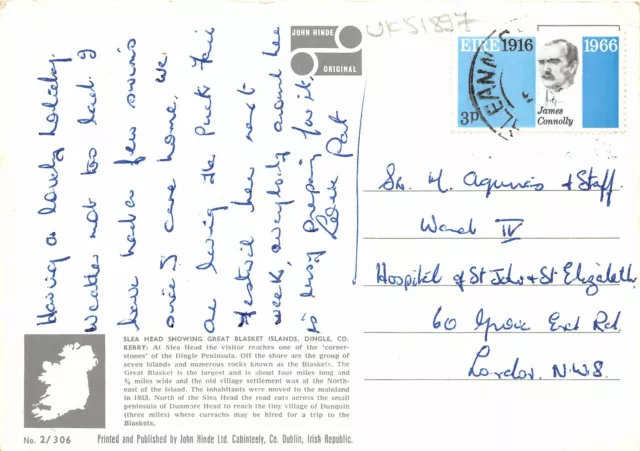 Having a lovely holiday.
Weather not too bad. I
have had a few swims
since I came home. We
are having the Puck Fair
Festival here next
week, everybody around here
is busy preparing for it.
Love Pat
JOHN HINDE
ORIGINAL
UK51897
EIRE 1916 1966
3p
James
Connolly
Sr. M. Agnes & Staff
Ward IV
Hospital of St John & St Elizabeth
60 Grove End Rd.
London. N.W.8.
SLEA HEAD SHOWING GREAT BLASKET ISLANDS, DINGLE, CO.
KERRY: At Slea Head the visitor reaches one of the 'corner-
stones' of the Dingle Peninsula. Off the shore are the group of
seven islands and numerous rocks known as the Blaskets. The
Great Blasket is the largest and is about four miles long and
¾ miles wide and the old village settlement was at the North-
east of the island. The inhabitants were moved to the mainland
in 1953. North of the Slea Head the road cuts across the small
peninsula of Dunmore Head to reach the tiny village of Dunquin
(three miles) where currachs may be hired for a trip to the
Blaskets.
No. 2/306 Printed and Published by John Hinde Ltd. Cabinteely, Co. Dublin, Irish Republic.